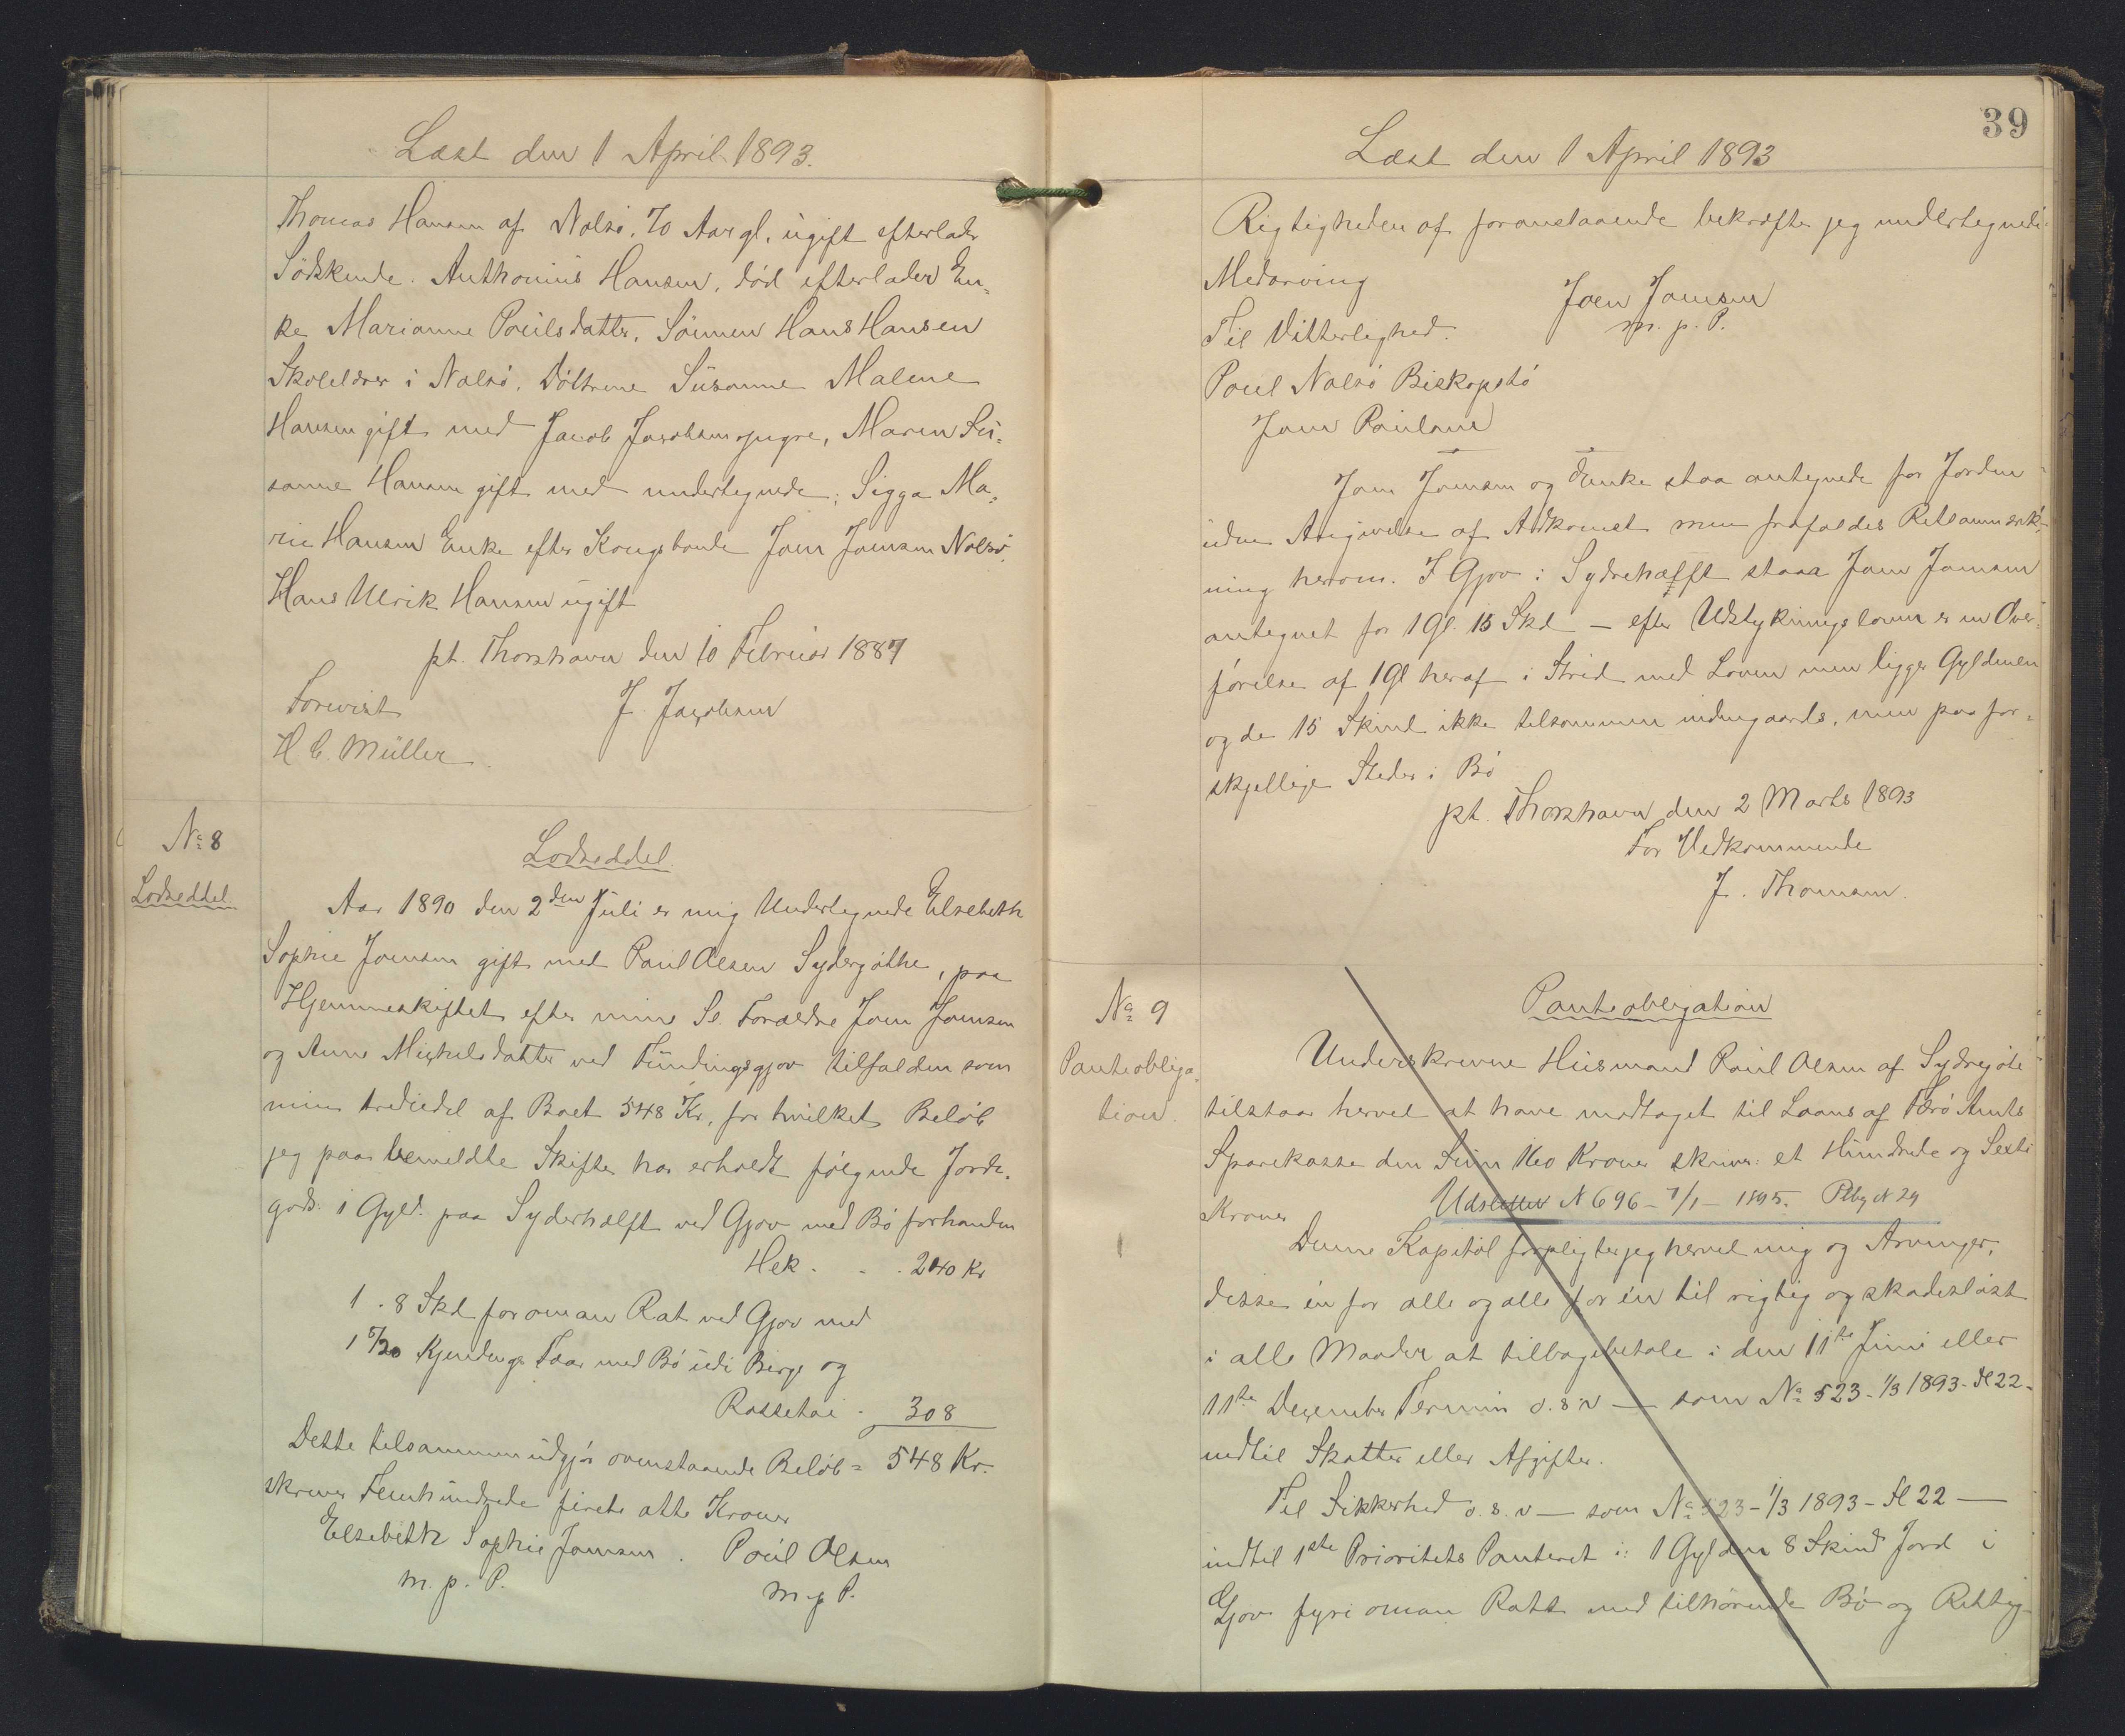 Læst den 1 April 1893.
Thomas Hansen af Nolsø, 70 Aar gl, ugift efterlader
Södskende. Anthonius Hansen, död efterlader En-
ke Marianne Poulsdatter, Sönnen Hans Hansen
Skolelærer i Nolsö, Döttrene Susanne Malene
Hansen gift med Jacob Jacobsen yngre, Maren Su-
sanne Hansen gift med undertegnede; Sigga Ma-
rie Hansen Enke efter Kongsbonde Joen Joensen Nolsö.
Hans Ulrik Hansen ugift
pt. Thorshavn den 10 Februar 1887
Forevist J. Jacobsen
H C. Müller
No 8
Lodseddel
Lodseddel
Aar 1890 den 2den Juli er mig Undertegnede Elsebeth
Sophie Joensen gift med Poul Olsen Sydergöthe, paa
Hjemmeskiftet efter mine Sl. Forældre Joen Joensen
og Anne Michelsdatter ved Fundingsgjov tilfalden som
min trediedel af Boet 548 Kr, for hvilket Belöb
jeg paa bemeldte Skifte har erholdt fölgende Jorde-
gods: 1 Gyld. paa Syderhalft ved Gjov med Bö forhanden
Hek. . . 240 Kr
1 . 8 Skd foroman Rat ved Gjov med
1 5/20 Kjendings Faar med Bö udi Berge og
Rossetoi . 308
Dette tilsammen udgjör ovenstaaende Belöb = 548 Kr.
skriver Femhundrede fireti otte Kroner
Elsebeth Sophie Joensen . Poul Olsen
m. p. P. m. p P.
39
Læst den 1 April 1893
Rigtigheden af foranstaaende bekræfter jeg undertegnede
Medarving Joen Joensen
Til Vitterlighed. m. p. P.
Poul Nolsö Biskopstö
Joen Poulsen
Joen Joensen og Enke staa antegnede for Jorden
uden Angivelse af Adkomst men frafaldes Retsanmærk-
ning herom. I Gjov i Sydrehalfft staaa Joen Joensen
antegnet for 1 Gl. 15 Skd — efter Udstykningsloven er en Over-
förelse af 1 Gl heraf i Strid med Loven men ligger Gyldenen
og de 15 Skind ikke tilsammen indengaards, men paa for-
skjellige Steder i Bö
pt. Thorshavn den 2 Marts 1893
For Vedkommende
J. Thomsen.
No 9
Panteobliga-
tion.
Panteobligation
Underskrevne Huusmand Poul Olsen af Sydregöte
tilstaar herved at have modtaget til Laans af Færö Amts
Sparekasse den Sum 160 Kroner skriver: et Hundrede og Sexti
Kroner Udslettet N 696 – 7/1 – 1895. Ptbg N 29
Denne Kapital forpligter jeg herved mig og Arvinger,
disse én for alle og alle for én til rigtig og skadeslöst
i alle Maader at tilbagebetale i den 11te Juni eller
11te December Termin o. s. v — som No 523 – 1/3 1893 – Sl 22 –
indtil Skatter eller Afgifter.
Til Sikkerhed o. s. v — som No 523 – 1/3 1893 – Sl 22 —
indtil 1ste Prioritets Panteret i: 1 Gylden 8 Skind Jord i
Gjov fyri oman Ratt med tilhörende Bö og Rettig-